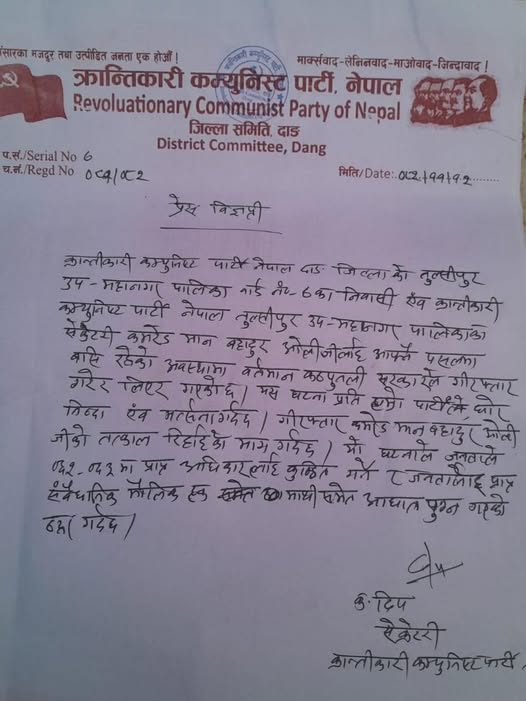 संसारका मजदूर तथा उत्पीडित जनता एक होऔं !
मार्क्सवाद-लेनिनवाद-माओवाद-जिन्दावाद !
क्रान्तिकारी कम्युनिस्ट पार्टी, नेपाल
Revoluationary Communist Party of Nepal
जिल्ला समिति, दाङ
District Committee, Dang
प.सं./Serial No 6
च.नं./Regd No ०८१/०८२
मिति/Date: ०८२/११/१२
प्रेस विज्ञप्ती
क्रान्तीकारी कम्युनिष्ट पार्टी नेपाल दाङ जिल्ला को तुल्सीपुर
उप-महानगर पालिका वार्ड नं॰ 6 का निवासी एंव क्रान्तीकारी
कम्युनिष्ट पार्टी नेपाल तुल्सीपुर उप-महानगर पालिकाका
सेक्रेटरी कमरेड मान बहादुर ओलीजीलाई आफ्नै पसलमा
बसि रहेको अवस्थामा वर्तमान कठपुतली सरकारले गीरफ्तार
गरेर लिएर गएकोछ । यस घटना प्रति हाम्रो पार्टीले घोर
निन्दा एंव भर्त्सना गर्दछ । गीरफ्तार कमरेड मान बहादुर ओली
जीको तत्काल रिहाईको माग गर्दछ । यो घटनाले जनताले
प्राप्त अधिकारलाई कुण्ठित गर्ने र जनतालाई प्राप्त
संवैधानिक मौलिक हक माथी समेत आघात पुग्न गएको
गर्दछ ।
क. दिप
सेक्रेटरी
क्रान्तीकारी कम्युनिष्ट पार्टी